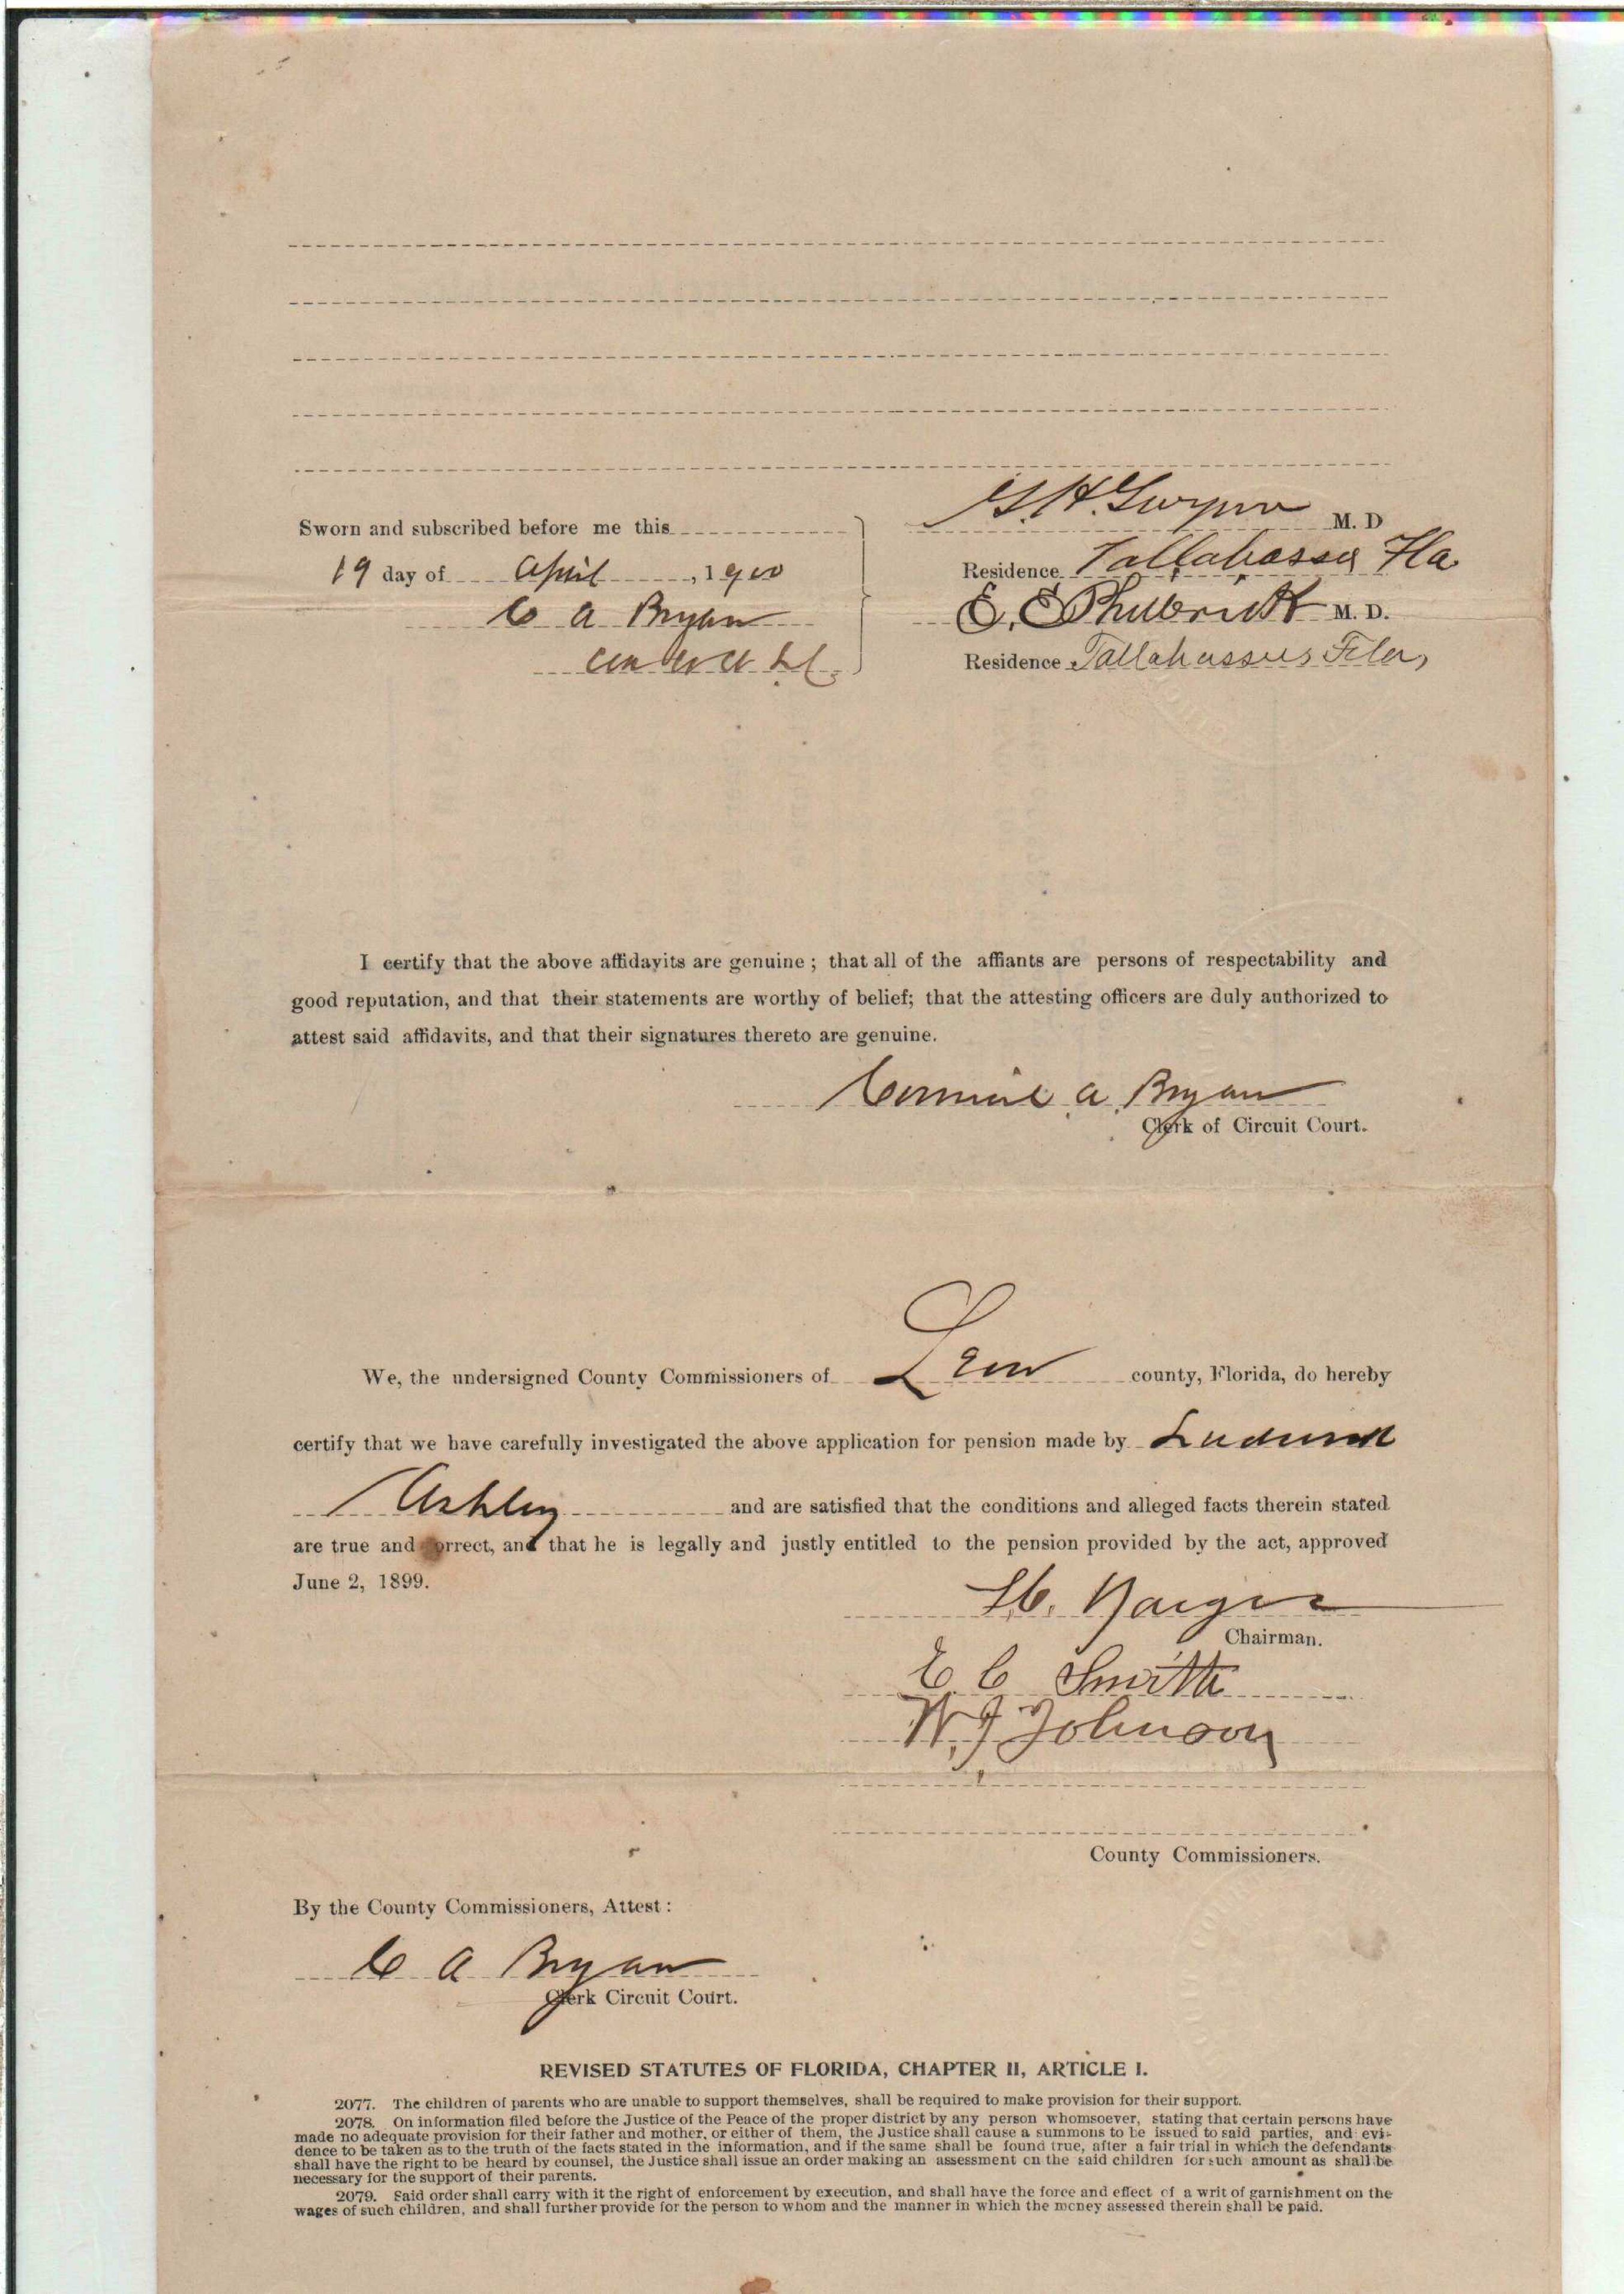 G. H. Gwynn M. D
Sworn and subscribed before me this
19 day of April, 1900
Residence Tallahassee Fla
C A Bryan
E. E Philbrick M. D.
Residence Tallahassee Fla,
I certify that the above affidavits are genuine; that all of the affiants are persons of respectability and
good reputation, and that their statements are worthy of belief; that the attesting officers are duly authorized to
attest said affidavits, and that their signatures thereto are genuine.
A. Bryan
Clerk of Circuit Court.
We, the undersigned County Commissioners of Leon county, Florida, do hereby
certify that we have carefully investigated the above application for pension made by
Ashley and are satisfied that the conditions and alleged facts therein stated
are true and correct, and that he is legally and justly entitled to the pension provided by the act, approved
June 2, 1899.
Chairman.
E. C Smith
W. J Johnson
County Commissioners.
By the County Commissioners, Attest:
C A Bryan
Clerk Circuit Court.
REVISED STATUTES OF FLORIDA, CHAPTER II, ARTICLE I.
2077. The children of parents who are unable to support themselves, shall be required to make provision for their support.
2078. On information filed before the Justice of the Peace of the proper district by any person whomsoever, stating that certain persons have
made no adequate provision for their father and mother, or either of them, the Justice shall cause a summons to be issued to said parties, and evi-
dence to be taken as to the truth of the facts stated in the information, and if the same shall be found true, after a fair trial in which the defendants
shall have the right to be heard by counsel, the Justice shall issue an order making an assessment on the said children for such amount as shall be
necessary for the support of their parents.
2079. Said order shall carry with it the right of enforcement by execution, and shall have the force and effect of a writ of garnishment on the
wages of such children, and shall further provide for the person to whom and the manner in which the money assessed therein shall be paid.